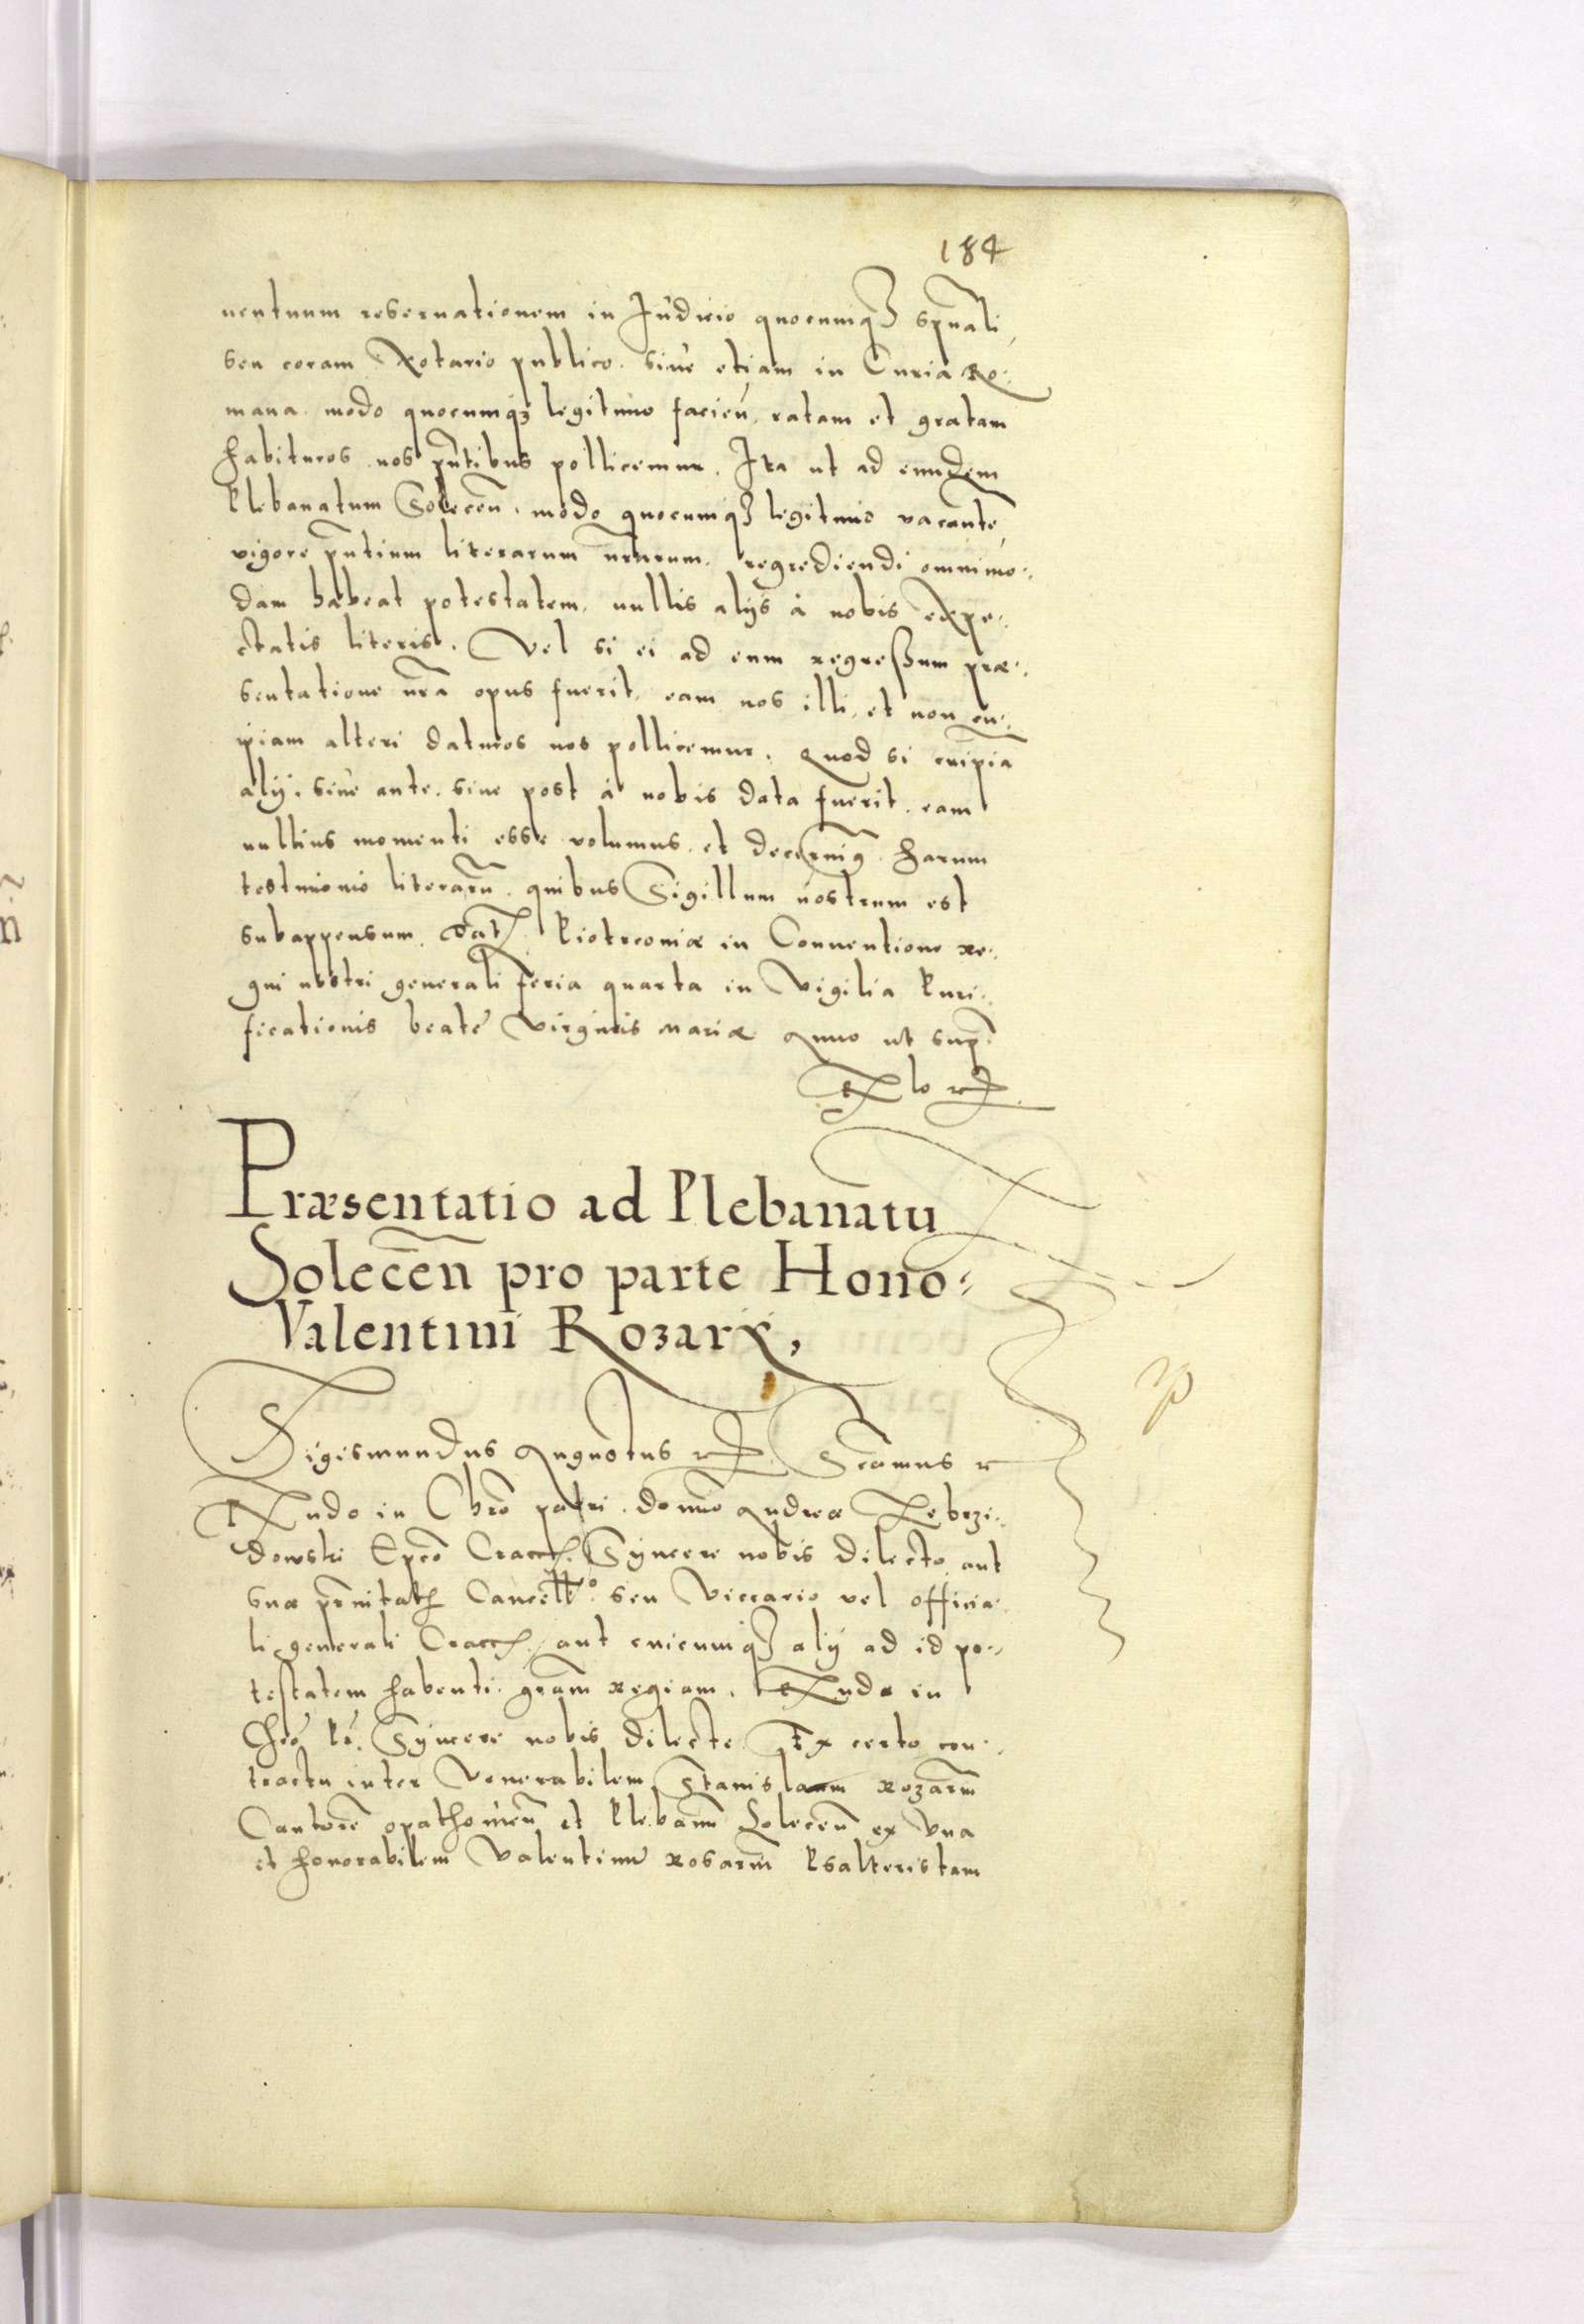 184
uentuum reseruationem in Judicio quocunq3 spũali,
seu coram Notario publico. siue etiam in Curia Ro-
mana modo quocumq3 legitimo facien̄. ratam et gratam
habituros nos pñtibus pollicemur. Ita ut ad eundem
Plebanatum Solecen̄. modo quocunq3 legitimo vacantẽ,
vigore pñtium literarum nr̃arum. regrediendi omnimo-
dam habeat potestatem, nullis alijs à nobis expe-
ctatis literis. Vel si ei ad eum regreßum præ-
sentatione nr̃a opus fuerit, eam nos illi, et non cu-
ipiam alteri daturos nos pollicemur. Quod si cuipiã
alij, siue ante, siue post à nobis data fuerit, eam
nullius momenti esse volumus, et decernimꝰ. harum
testimonio literarũ. quibus Sigillum nostrum est
subappensum. Dat. Piotrcouiæ in Conuentione re-
gni nostri generali feria quarta in Vigilia Puri-
ficationis beatę Virginis Mariæ Anno ut sup̃.

Præsentatio ad Plebanatu
Solecen̄ pro parte Hono-
Valentini Rozarẏ,
Sigismundus Augustus
Rndo in Chro patri. domino Andreæ Zebrzi-
dowski Ep̃o Cracc. Syncere nobis dilecto, aut
suæ p̃rnitatis Cancellº. seu Viccario vel officia-
li generali Cracc. aut cuicunq3 alij ad id po-
testatem habenti. grãm regiam. Rnde in
Chrõ P̃r. Syncere nobis dilecte. Ex certo con-
tractu inter Venerabilem Stanislaum Rozarim̃
Cantorẽ Opathouien̄ et Plebanũ Solecen̄ ex Vna
et honorabilem Valentinũ Rosarim̃ Psalteristam